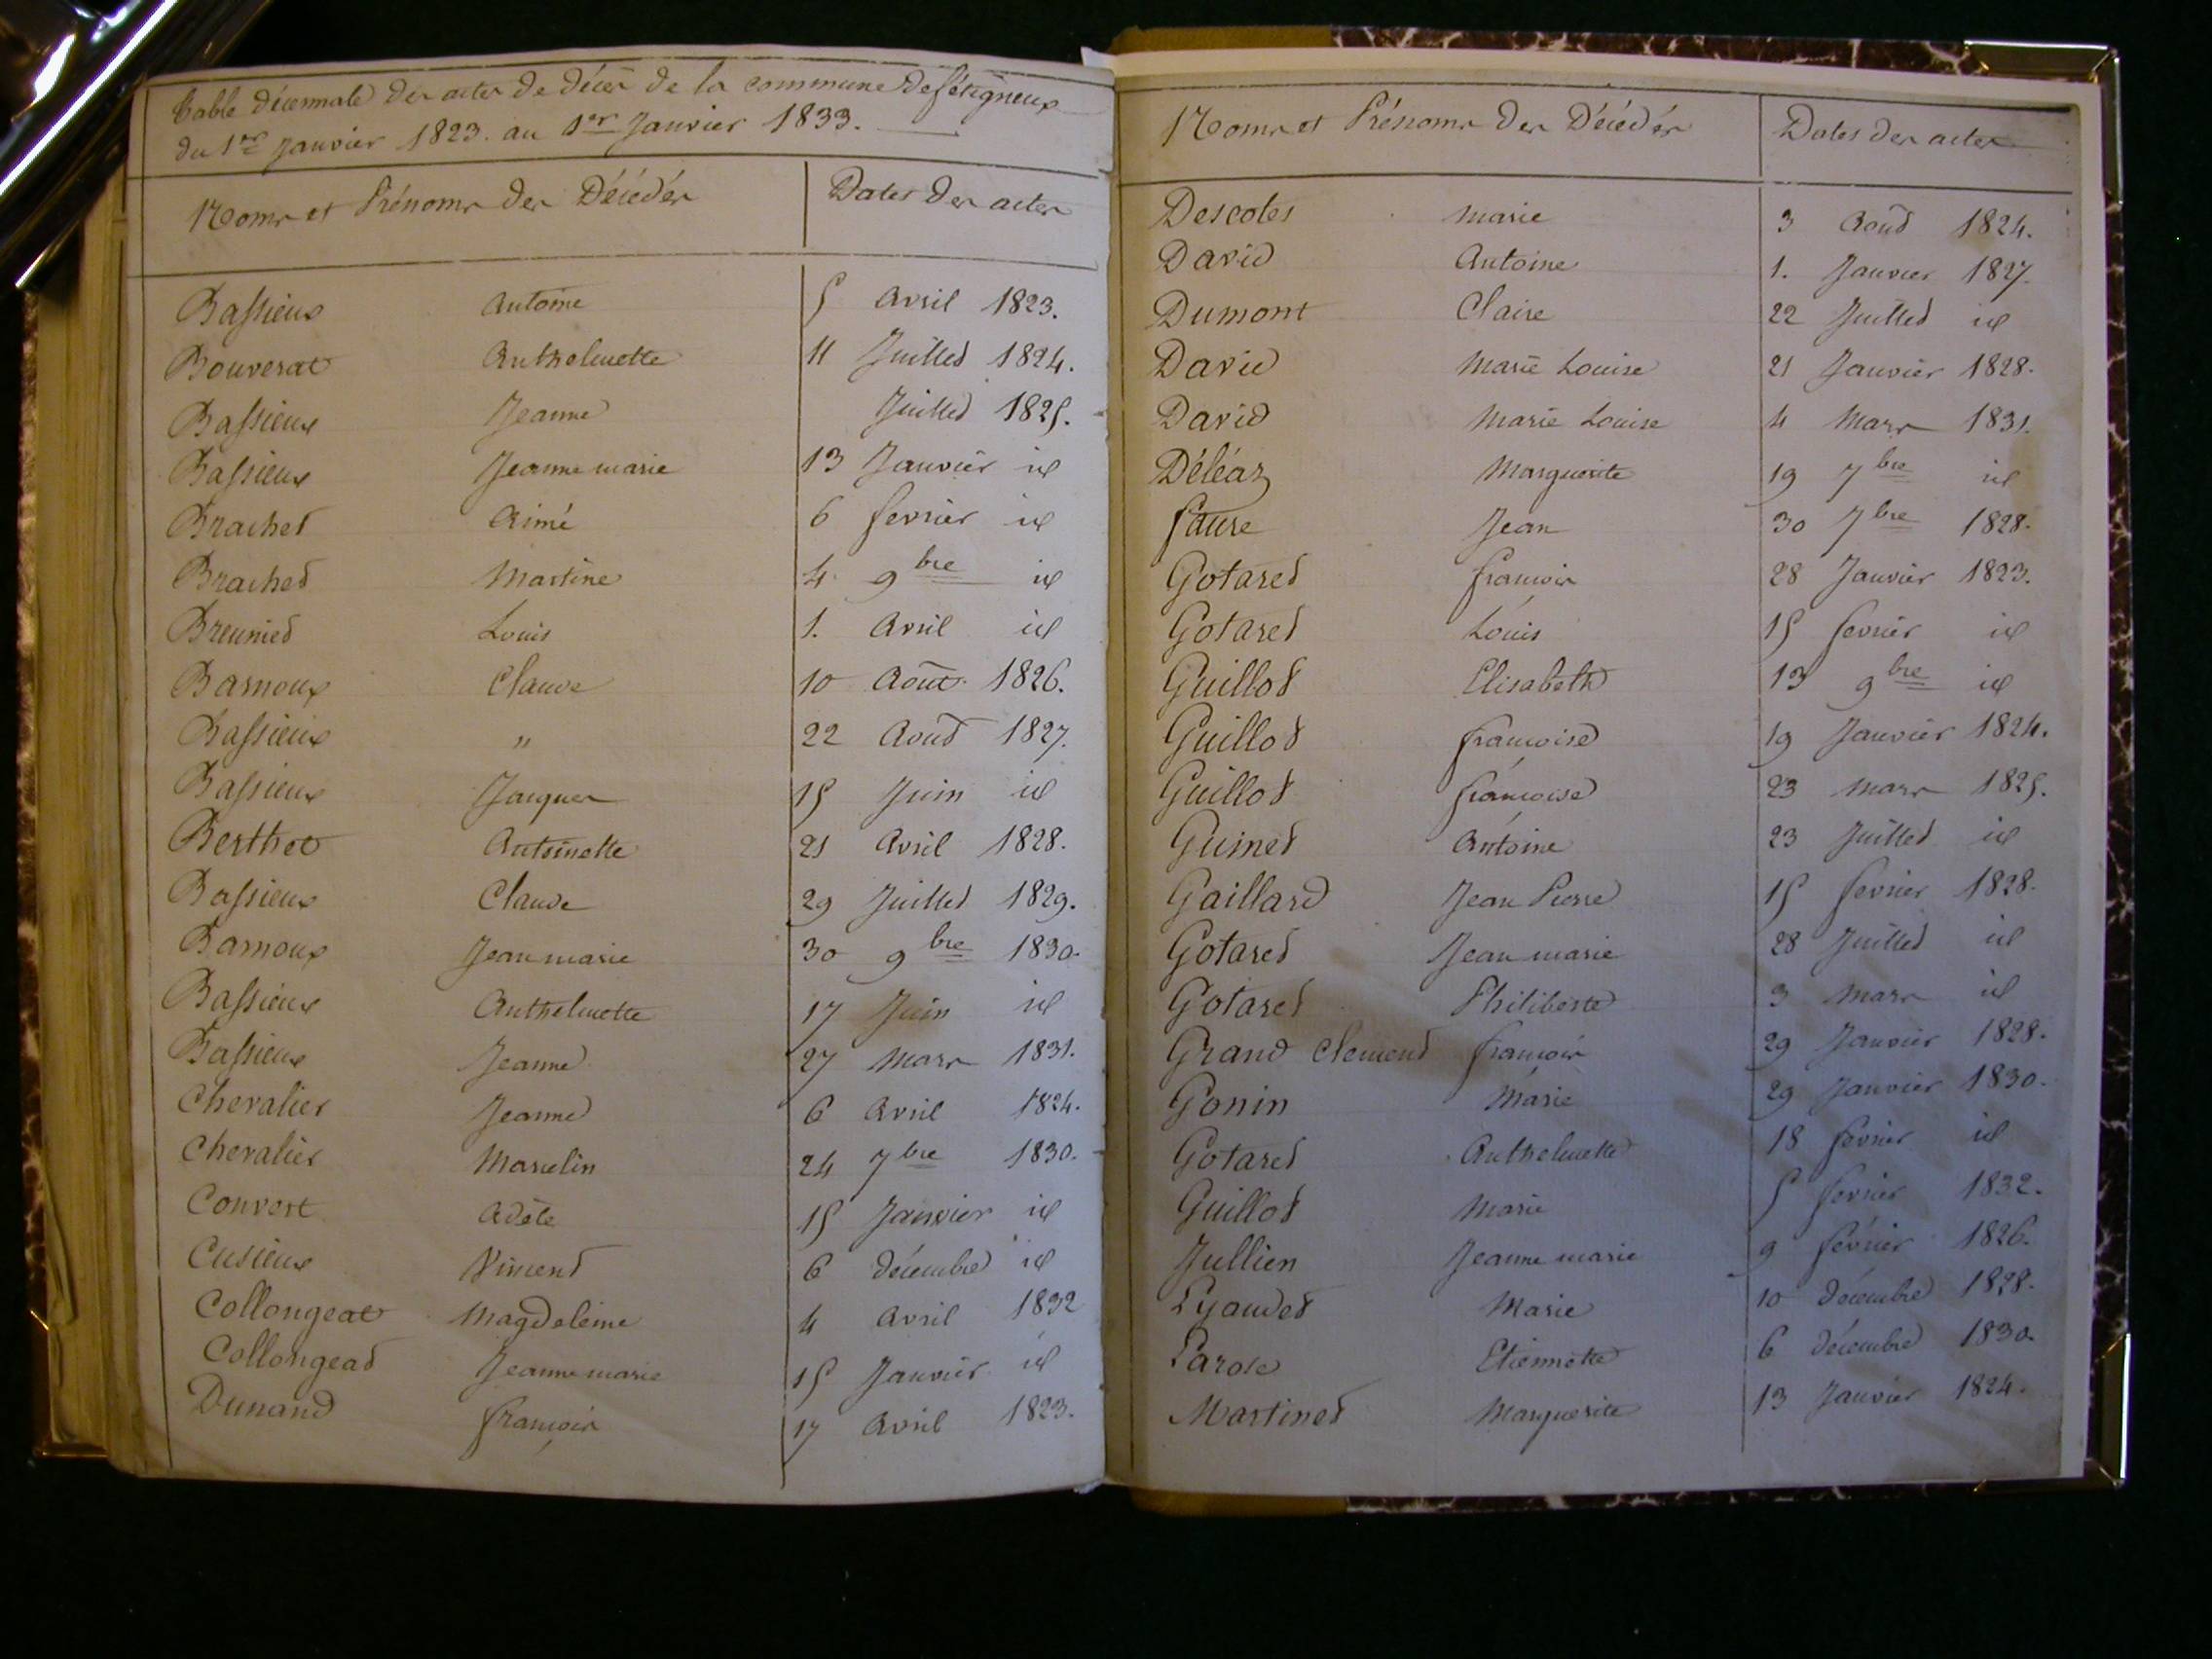 Table décennale des actes de décès de la commune de Sérigneux
du 1er Janvier 1823. au 1er Janvier 1833.
Noms et Prénoms des Décédés Dates des actes
Bassieux Antoine 5 Avril 1823.
Bouverat Anthelmette 11 Juillet 1824.
Bassieux Jeanne Juillet 1825.
Bassieux Jeanne marie 13 Janvier id
Brachet Aimé 6 fevrier id
Brachet Martine 4 9bre id
Breunied Louis 1. Avril id
Barnoux Claude 10 Août 1826.
Bassieux " 22 Aout 1827.
Bassieux Jacques 15 Juin id
Berthet Antoinette 21 Avril 1828.
Bassieux Claude 29 Juillet 1829.
Barnoux Jean marie 30 9bre 1830.
Bassieux Anthelmette 17 Juin id
Bassieux Jeanne 27 Mars 1831.
Chevalier Jeanne 6 Avril 1824.
Chevalier Marcelin 24 7bre 1830.
Convert Adèle 15 Janvier id
Cusieux Vincent 6 décembre id
Collongeat Magdeleine 4 Avril 1832
Collongeat Jeanne marie 15 Janvier id
Dunand françois 17 Avril 1823.
Noms et Prénoms des Décédés Dates des actes
Descotes marie 3 Août 1824.
David Antoine 1. Janvier 1827.
Dumont Claire 22 Juillet id
David Marie Louise 21 Janvier 1828.
David Marie Louise 4 Mars 1831.
Déléaz Marguerite 19 7bre id
faure Jean 30 7bre 1828.
Gotaret françois 28 Janvier 1823.
Gotaret Louis 15 fevrier id
Guillot Elisabeth 13 9bre id
Guillot françoise 19 Janvier 1824.
Guillot françoise 23 mars 1825.
Guinet Antoine 23 Juillet id
Gaillard Jean Pierre 15 fevrier 1828.
Gotaret Jean marie 28 Juillet id
Gotaret Philiberte 3 mars id
Grand Clement françois 29 Janvier 1828.
Gonin Marie 29 Janvier 1830.
Gotaret Anthelmette 18 fevrier id
Guillot Marie 5 fevrier 1832.
Jullien Jeanne marie 9 février 1826.
Lyaudet Marie 10 décembre 1828.
Etiennette 6 décembre 1830.
Martinet Marguerite 13 Janvier 1824.